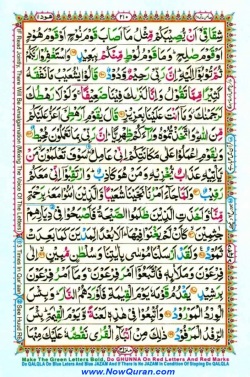 هود ١١
٢١٠
شِقَاقِيْٓ اَنْ يُّصِيْبَكُمْ مِّثْلُ مَآ اَصَابَ قَوْمَ نُوْحٍ اَوْ قَوْمَ هُوْدٍ
اَوْ قَوْمَ صٰلِحٍ وَمَا قَوْمُ لُوْطٍ مِّنْكُمْ بِبَعِيْدٍ وَاسْتَغْفِرُوْا رَبَّكُمْ
ثُمَّ تُوْبُوْٓا اِلَيْهِ اِنَّ رَبِّيْ رَحِيْمٌ وَّدُوْدٌ قَالُوْا يٰشُعَيْبُ مَا نَفْقَهُ
كَثِيْرًا مِّمَّا تَقُوْلُ وَاِنَّا لَنَرٰىكَ فِيْنَا ضَعِيْفًا وَلَوْلَا رَهْطُكَ
لَرَجَمْنٰكَ وَمَآ اَنْتَ عَلَيْنَا بِعَزِيْزٍ قَالَ يٰقَوْمِ اَرَهْطِيْٓ اَعَزُّ عَلَيْكُمْ
مِّنَ اللّٰهِ وَاتَّخَذْتُمُوْهُ وَرَآءَكُمْ ظِهْرِيًّا اِنَّ رَبِّيْ بِمَا تَعْمَلُوْنَ مُحِيْطٌ
وَيٰقَوْمِ اعْمَلُوْا عَلٰى مَكَانَتِكُمْ اِنِّيْ عَامِلٌ سَوْفَ تَعْلَمُوْنَ مَنْ
يَّاْتِيْهِ عَذَابٌ يُّخْزِيْهِ وَمَنْ هُوَ كَاذِبٌ وَارْتَقِبُوْٓا اِنِّيْ مَعَكُمْ
رَقِيْبٌ وَلَمَّا جَآءَ اَمْرُنَا نَجَّيْنَا شُعَيْبًا وَّالَّذِيْنَ اٰمَنُوْا مَعَهٗ بِرَحْمَةٍ
مِّنَّا وَاَخَذَتِ الَّذِيْنَ ظَلَمُوا الصَّيْحَةُ فَاَصْبَحُوْا فِيْ دِيَارِهِمْ
جٰثِمِيْنَ كَاَنْ لَّمْ يَغْنَوْا فِيْهَا اَلَا بُعْدًا لِّمَدْيَنَ كَمَا بَعِدَتْ
ثَمُوْدُ وَلَقَدْ اَرْسَلْنَا مُوْسٰى بِاٰيٰتِنَا وَسُلْطٰنٍ مُّبِيْنٍ اِلٰى
فِرْعَوْنَ وَمَلَا۟ئِهٖ فَاتَّبَعُوْٓا اَمْرَ فِرْعَوْنَ وَمَآ اَمْرُ فِرْعَوْنَ
بِرَشِيْدٍ يَقْدُمُ قَوْمَهٗ يَوْمَ الْقِيٰمَةِ فَاَوْرَدَهُمُ النَّارَ وَبِئْسَ
الْوِرْدُ الْمَوْرُوْدُ وَاُتْبِعُوْا فِيْ هٰذِهٖ لَعْنَةً وَّيَوْمَ الْقِيٰمَةِ بِئْسَ
الرِّفْدُ الْمَرْفُوْدُ ذٰلِكَ مِنْ اَنْۢبَآءِ الْقُرٰى نَقُصُّهٗ عَلَيْكَ مِنْهَا
Make The Green Letters Bold, Do GHUNNA On Red Letters And Red Marks
Do QALQLA On Blue Letters And Blue JAZAM And If There Is An JAZAM In Condition Of Stoping Do QALQLA
www.NowQuran.com